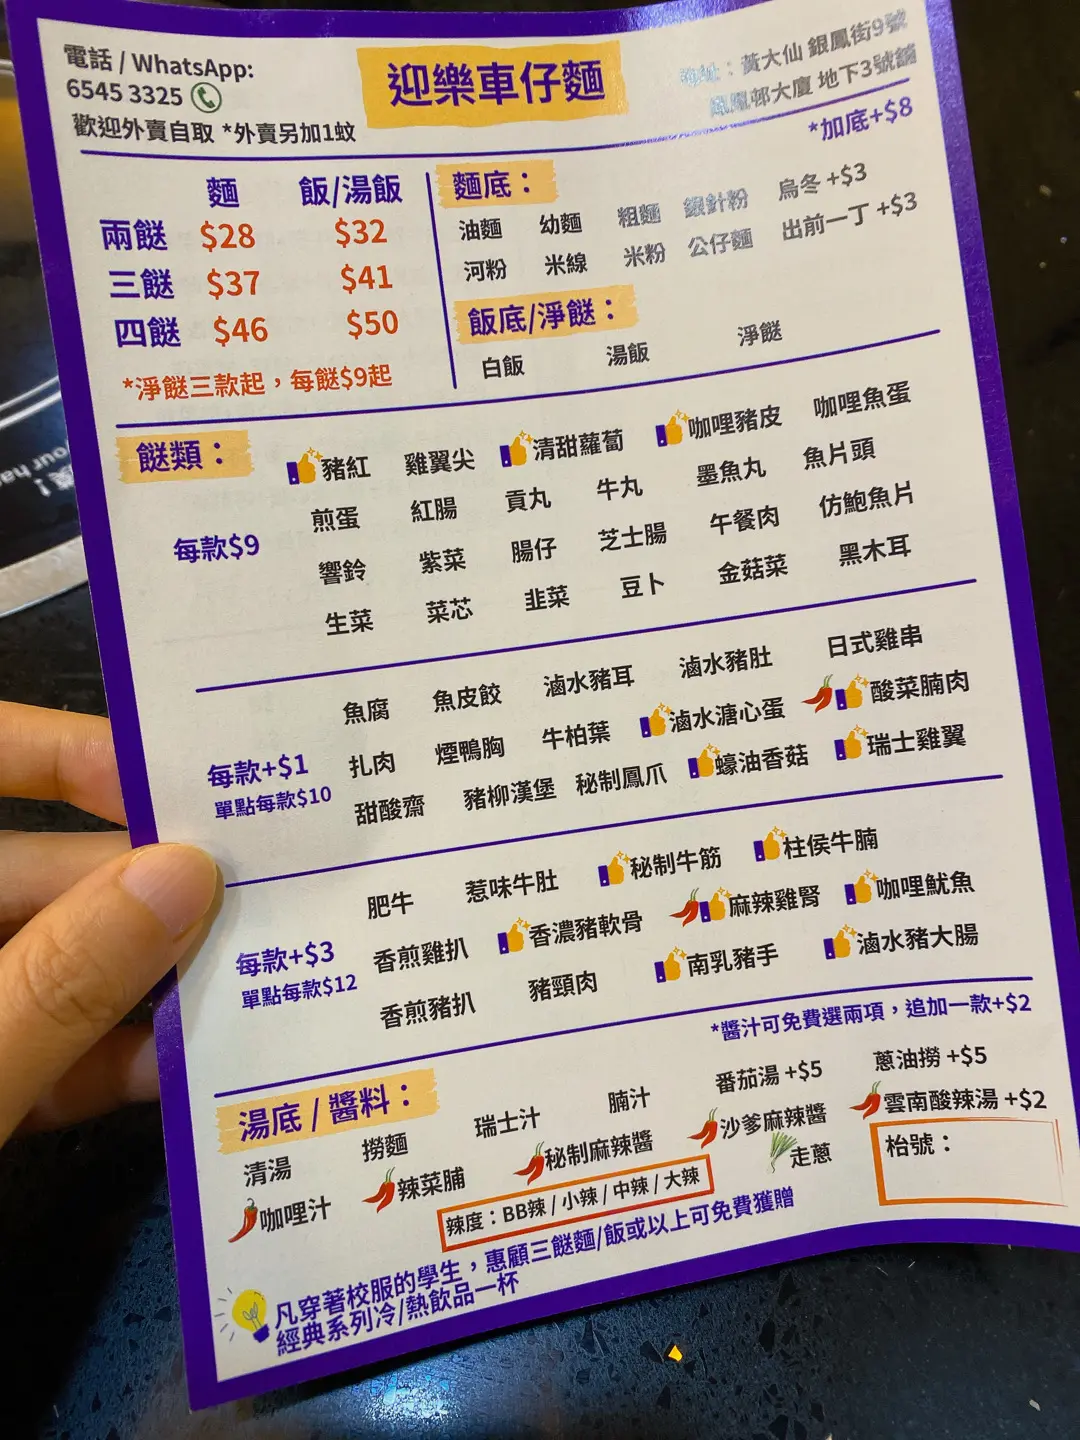 電話 / WhatsApp:
6545 3325
歡迎外賣自取 *外賣另加1蚊
迎樂車仔麵
地址：黃大仙 銀鳳街9號
鳳凰邨大廈 地下3號舖
*加底+$8
麵 飯/湯飯
兩餸 $28 $32
三餸 $37 $41
四餸 $46 $50
*淨餸三款起，每餸$9起
麵底：
油麵 幼麵 粗麵 銀針粉 烏冬 +$3
河粉 米線 米粉 公仔麵 出前一丁 +$3
飯底/淨餸：
白飯 湯飯 淨餸
餸類：
每款$9
豬紅 雞翼尖 清甜蘿蔔 咖哩豬皮 咖哩魚蛋
煎蛋 紅腸 貢丸 牛丸 墨魚丸 魚片頭
響鈴 紫菜 腸仔 芝士腸 午餐肉 仿鮑魚片
生菜 菜芯 韭菜 豆卜 金菇菜 黑木耳
每款+$1
單點每款$10
魚腐 魚皮餃 滷水豬耳 滷水豬肚 日式雞串
扎肉 煙鴨胸 牛柏葉 滷水溏心蛋 酸菜腩肉
甜酸齋 豬柳漢堡 秘制鳳爪 蠔油香菇 瑞士雞翼
每款+$3
單點每款$12
肥牛 惹味牛肚 秘制牛筋 柱侯牛腩
香煎雞扒 香濃豬軟骨 麻辣雞腎 咖哩魷魚
香煎豬扒 豬頸肉 南乳豬手 滷水豬大腸
*醬汁可免費選兩項，追加一款+$2
湯底 / 醬料：
清湯 撈麵 瑞士汁 腩汁 番茄湯 +$5 蔥油撈 +$5
咖哩汁 辣菜脯 秘制麻辣醬 沙爹麻辣醬 雲南酸辣湯 +$2
辣度：BB辣 / 小辣 / 中辣 / 大辣
走蔥
枱號：
凡穿著校服的學生，惠顧三餸麵/飯或以上可免費獲贈
經典系列冷/熱飲品一杯